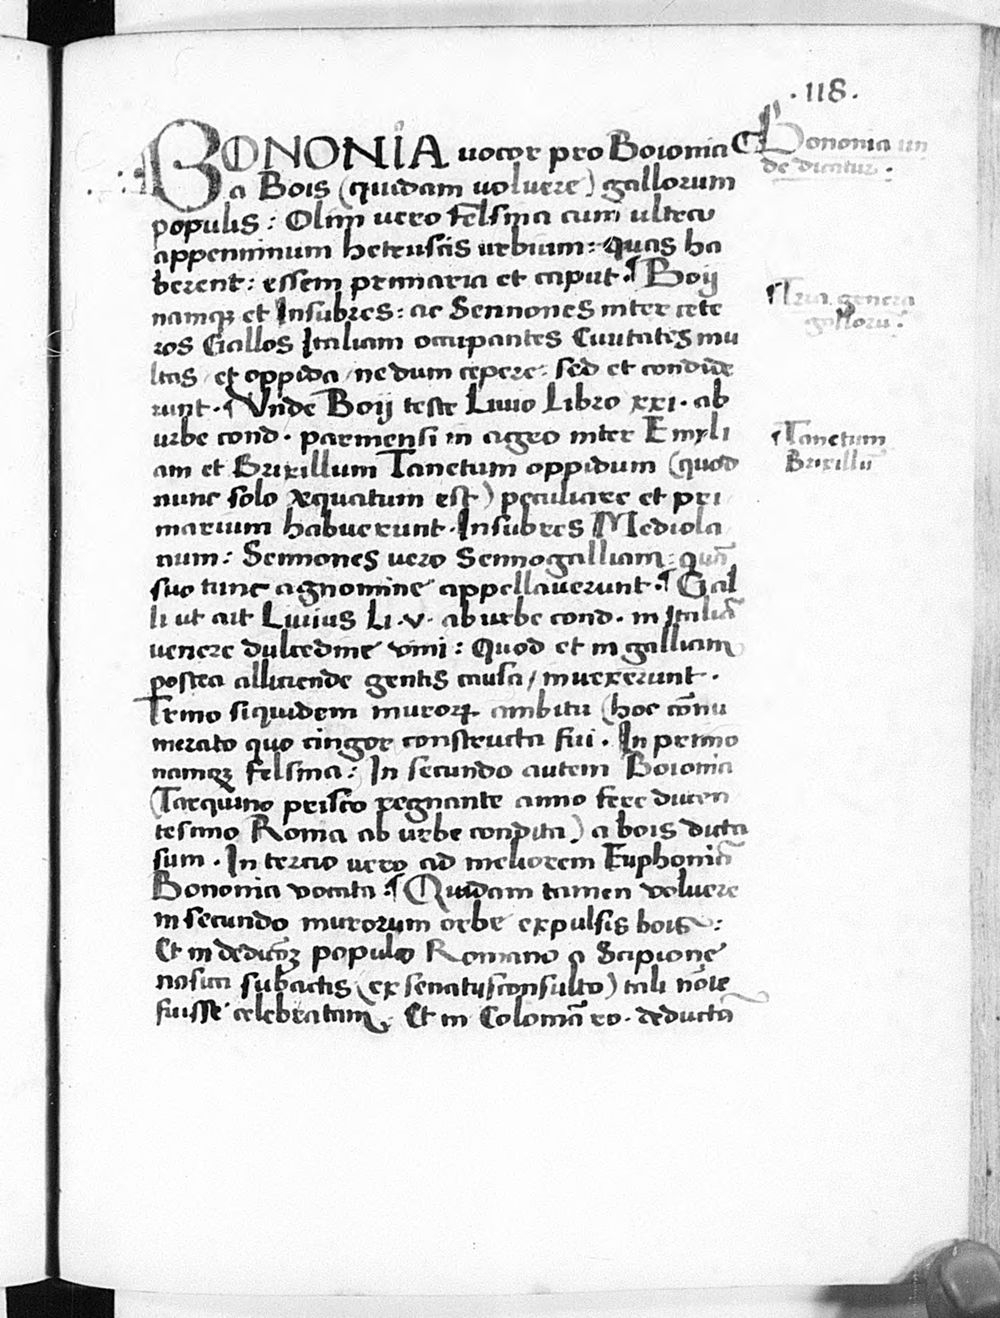 ·118·
BONONIA uocor pro Boionia
a Bois (quidam uoluere) gallorum
populis: Olim uero felsina cum ultra
appenninum hetruscis urbium: quas ha
berent: essem primaria et caput· ¶ Boij
namqꝫ et Insubres: ac Sennones inter cete
ros Gallos Italiam occupantes Ciuitates mu
ltas / et oppida / nedum cepere: sed et condide
runt· ¶ Vnde Boij teste Liuio Libro xxi· ab
urbe cond· parmensi in agro inter Emyli
am et Brixillum Tanetum oppidum (quod
nunc solo æquatum est) peculiare et pri
marium habuerunt· Insubres Mediola
num: Sennones uero Sennogalliam: quã
suo tunc agnomine appellauerunt· ¶ Gal
li ut ait Liuius Li·v· ab urbe cond· in Italiã
uenere dulcedine vini: Quod et in galliam
postea alliciende gentis causa / inuexerunt·
Trino siquidem muroꝝ ambitu (hoc cõnu
merato quo cingor constructa fui· In primo
namqꝫ felsina: In secundo autem Boionia
(Tarquino prisco regnante anno fere ducen
tesimo Roma ab urbe condita) a bois dicta
sum· In tercio uero ad meliorem Euphoniã
Bononia vocata: ¶ Quidam tamen voluere
in secundo murorum orbe expulsis bois:
Et in dedicõꝫ populo Romano a Scipione
nasica subactis (ex senatusconsulto) tali nõie
fuisse celebratam. Et in Coloniã ro· deducta
Bononia un
de dicatur·
¶ Tria genera
gallorũ·
¶ Tanetum
Brixillũ